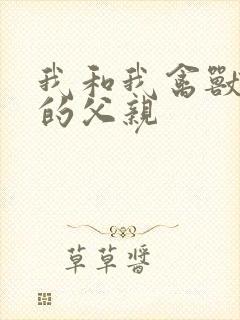 我和我禽獸
的父親
草草醬